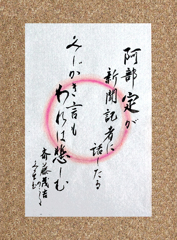 阿部定が
新聞記者に
話したる
みじかき言も
われは悲しむ
斎藤茂吉